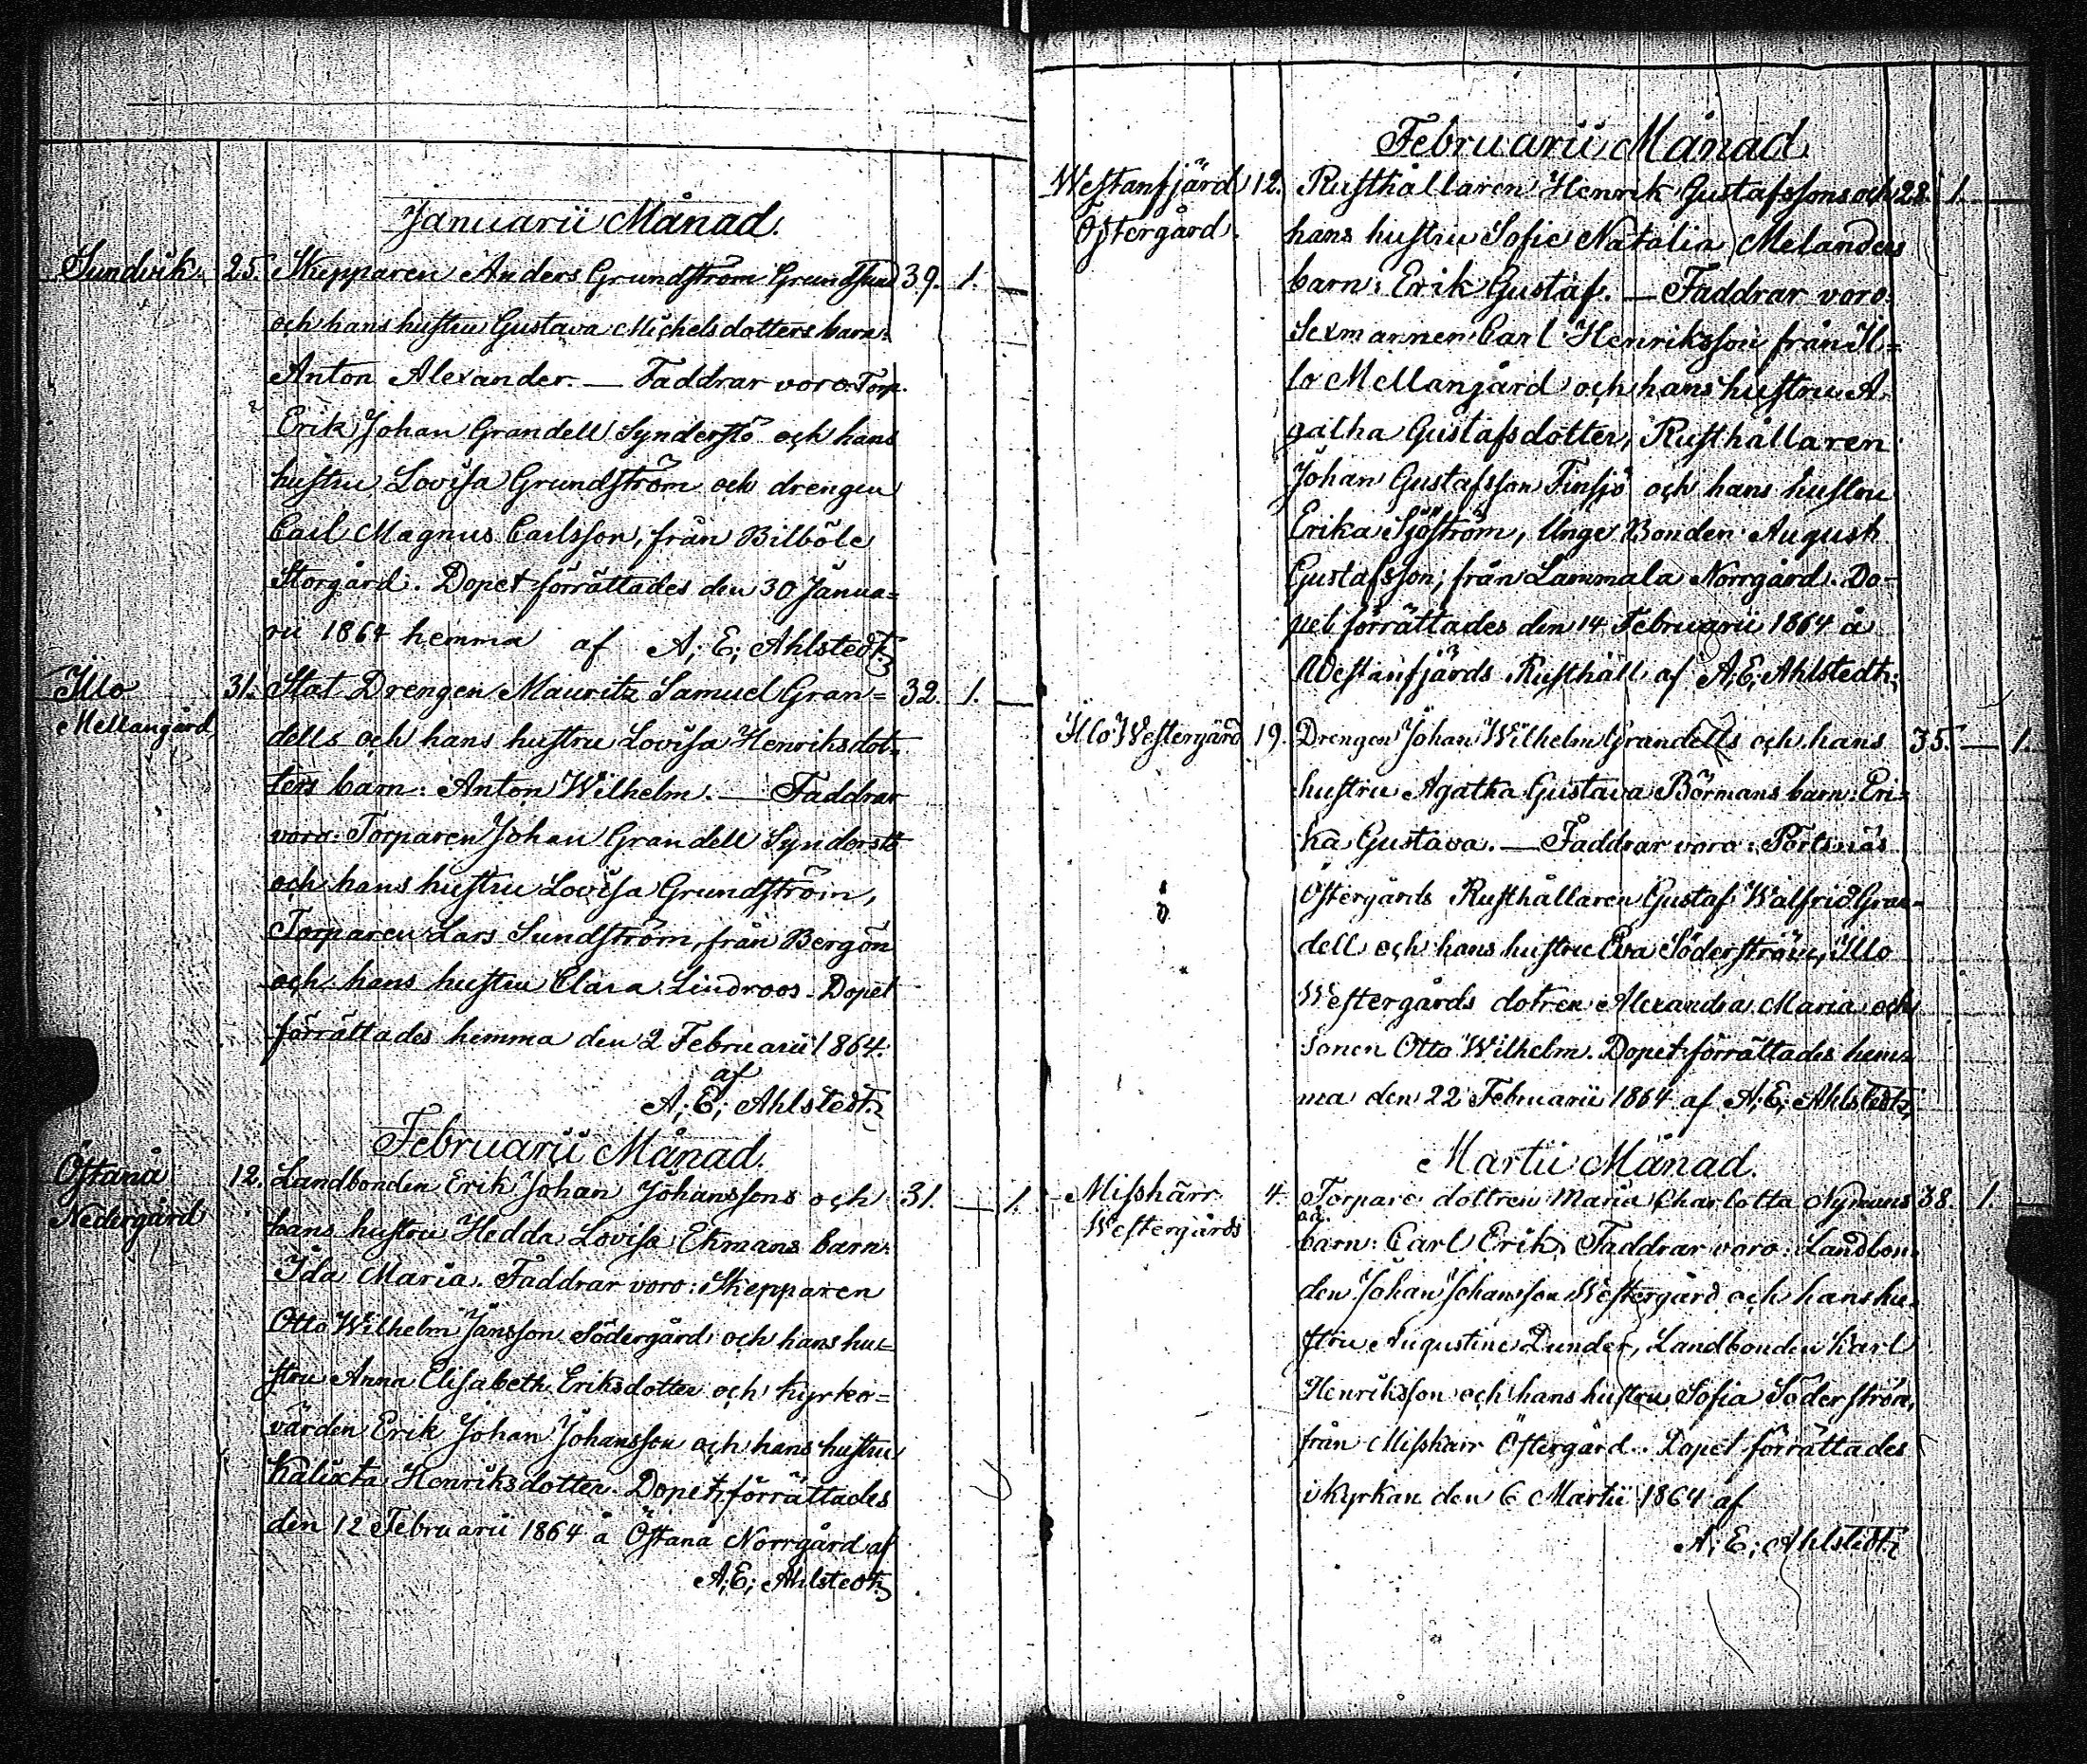 Januarii Månad.
Sundvik. 25. Skepparen Anders Grundström Grundsund 39. 1. —
och hans hustru Gustava Michelsdotters barn:
Anton Alexander. — Faddrar voro: Torp.
Erik Johan Grandell Synderstö och hans
hustru Lovisa Grundström och drengen
Carl Magnus Carlsson, från Bilböle
Storgård. Dopet förrättades den 30 Janua=
rii 1864 hemma af A; E; Ahlstedt.
Illo 31. Stat Drengen Mauritz Samuel Gran= 32. 1. —
Mellangård dells och hans hustru Lovisa Henriksdot=
ters barn: Anton Wilhelm. — Faddrar
voro: Torparen Johan Grandell Synderstö
och hans hustru Lovisa Grundström,
Torparen Lars Sundström, från Bergön
och hans hustru Clara Lindroos. Dopet
förrättades hemma den 2 Februarii 1864.
af
A; E; Ahlstedt.
Februarii Månad.
Östanå 12. Landbonden Erik Johan Johanssons och 31. — 1.
Nedergård hans hustru Hedda Lovisa Ekmans barn:
Ida Maria. Faddrar voro: Skepparen
Otto Wilhelm Jansson Södergård och hans hu=
stru Anna Elisabeth Eriksdotter och Kyrko=
värden Erik Johan Johansson och hans hustru
Kalixta Henriksdotter. Dopet förrättades
den 12 Februarii 1864 å Östanå Norrgård af
A; E; Ahlstedt.
Februarii Månad
Westanfjärd 12. Rusthållaren Henrik Gustafssons och 28. 1. —
Östergård. hans hustru Sofie Natalia Melanders
barn: Erik Gustaf. — Faddrar voro:
Sexmannen Carl Henriksson från Il=
lo Mellangård och hans hustru A
gatha Gustafsdotter, Rusthållaren
Johan Gustafsson Finsjö och hans hustru
Erika Sjöström, Unge Bonden August
Gustafsson, från Lammala Norrgård. Do=
pet förrättades den 14 Februarii 1864 å
Westanfjärds Rusthåll af A; E; Ahlstedt.
Illo Westergård 19. Drengen Johan Wilhelm Grandells och hans 35. — 1.
hustru Agatha Gustava Börmans barn: Eri=
ka Gustava. — Faddrar voro: Pörtsnäs
Östergårds Rusthållaren Gustaf Walfrid Gran=
dell och hans hustru Eva Söderström, Illo
Westergårds dotren Alexandra Maria och
sonen Otto Wilhelm. Dopet förrättades hem=
ma den 22 Februarii 1864 af A; E; Ahlstedt.
Martii Månad.
Misskärr 4. Torpare dottren Maria Charlotta Nymans 38. 1. —
Westergårds oä. barn: Carl Erik. Faddrar voro: Landbon=
den Johan Johansson Westergård och hans hu=
stru Augustine Dunder, Landbonden Karl
Henriksson och hans hustru Sofia Söderström,
från Misskärr Östergård. Dopet förrättades
i kyrkan den 6 Martii 1864 af
A; E; Ahlstedt.